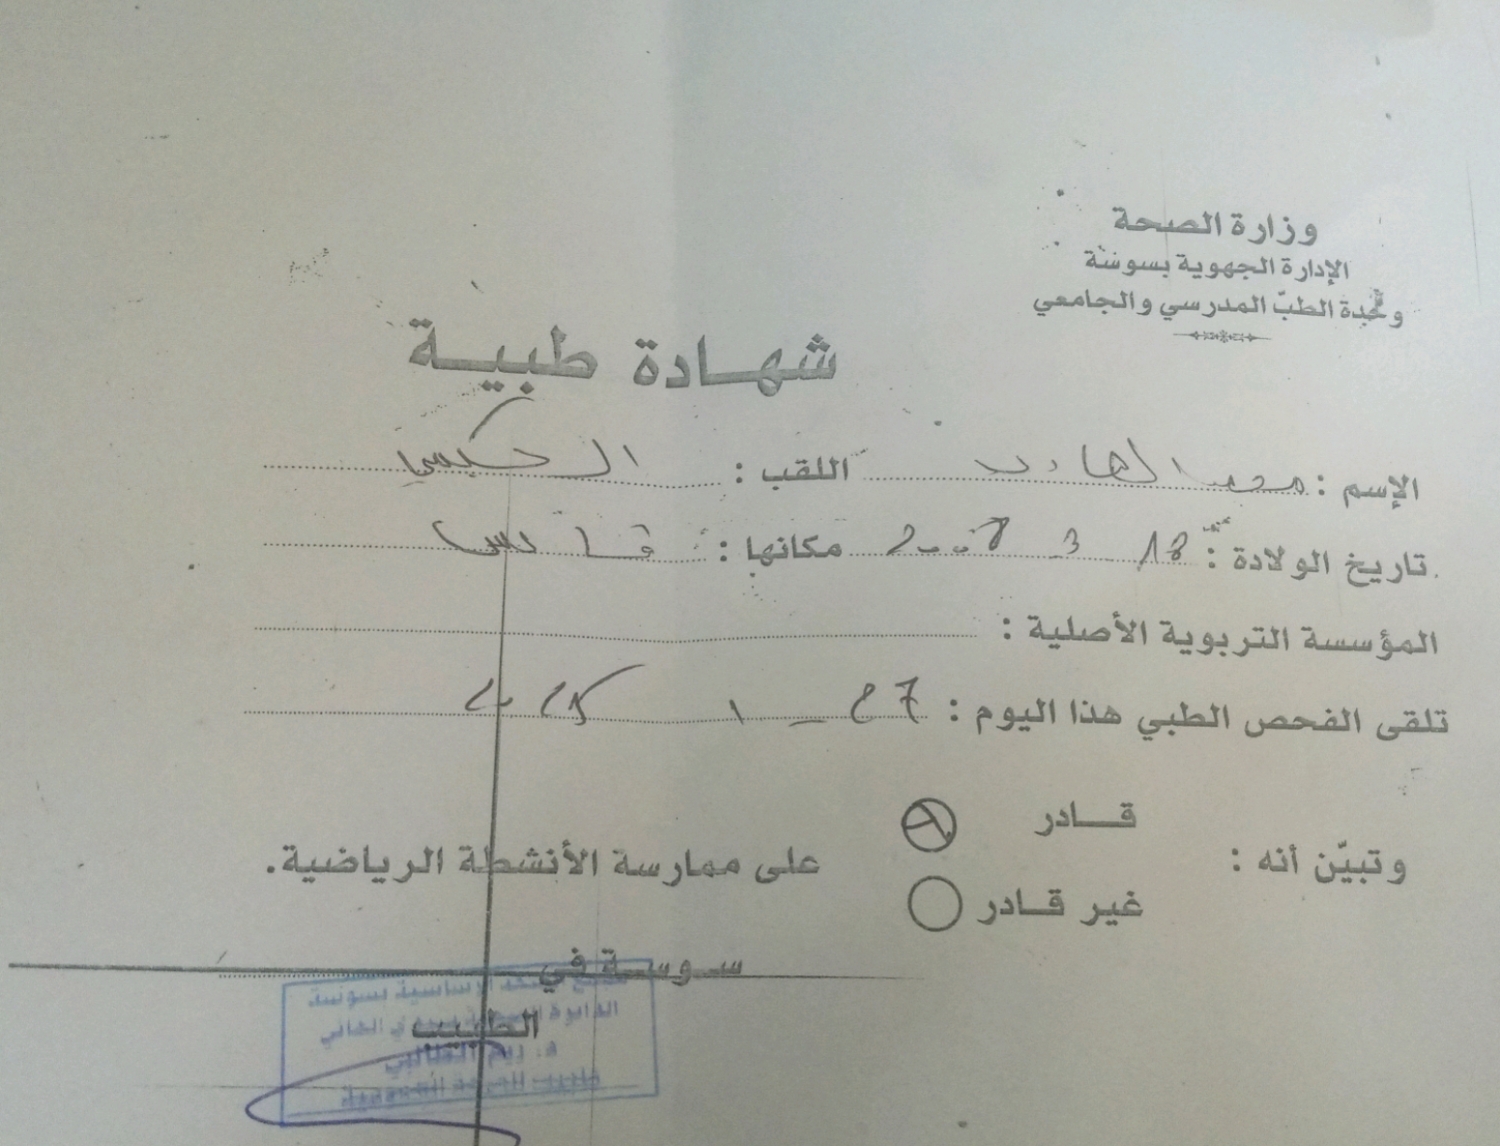 وزارة الصحة
الإدارة الجهوية بسوسة
وحدة الطبّ المدرسي والجامعي
شهادة طبية
الإسم : محمد الهادي اللقب :
تاريخ الولادة : 18 3 2008 مكانها : قابس
المؤسسة التربوية الأصلية :
تلقى الفحص الطبي هذا اليوم : 27
وتبيّن أنه :
قادر
غير قادر
على ممارسة الأنشطة الرياضية.
سوسة في
الطبيب